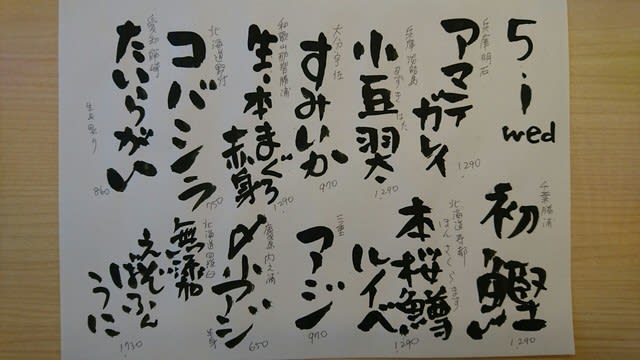 5.1
wed
兵庫 明石
アマテガレイ
1.290
兵庫 淡路島
あずきはた
小豆羽太
1.290
大分 宇佐
すみいか
970
和歌山 那智勝浦
生・本まぐろ
赤身
1.290
北海道 野付
コバシラ
750
愛知 師崎
たいらがい
860
千葉 勝浦
初鰹
1.290
北海道 寿都
ほんさくらます
本桜鱒
ルイベ
1.290
三重
アジ
970
内之浦
〆小アジ
650
半身
北海道
無添加
えぞばふん
うに
1.730